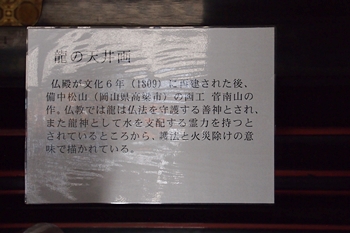 龍の天井画
仏殿が文化6年（1809）に再建された後、
備中松山（岡山県高梁市）の画工 菅南山の
作。仏教では龍は仏法を守護する善神とされ、
また龍神として水を支配する霊力を持つと
されているところから、護法と火災除けの意
味で描かれている。